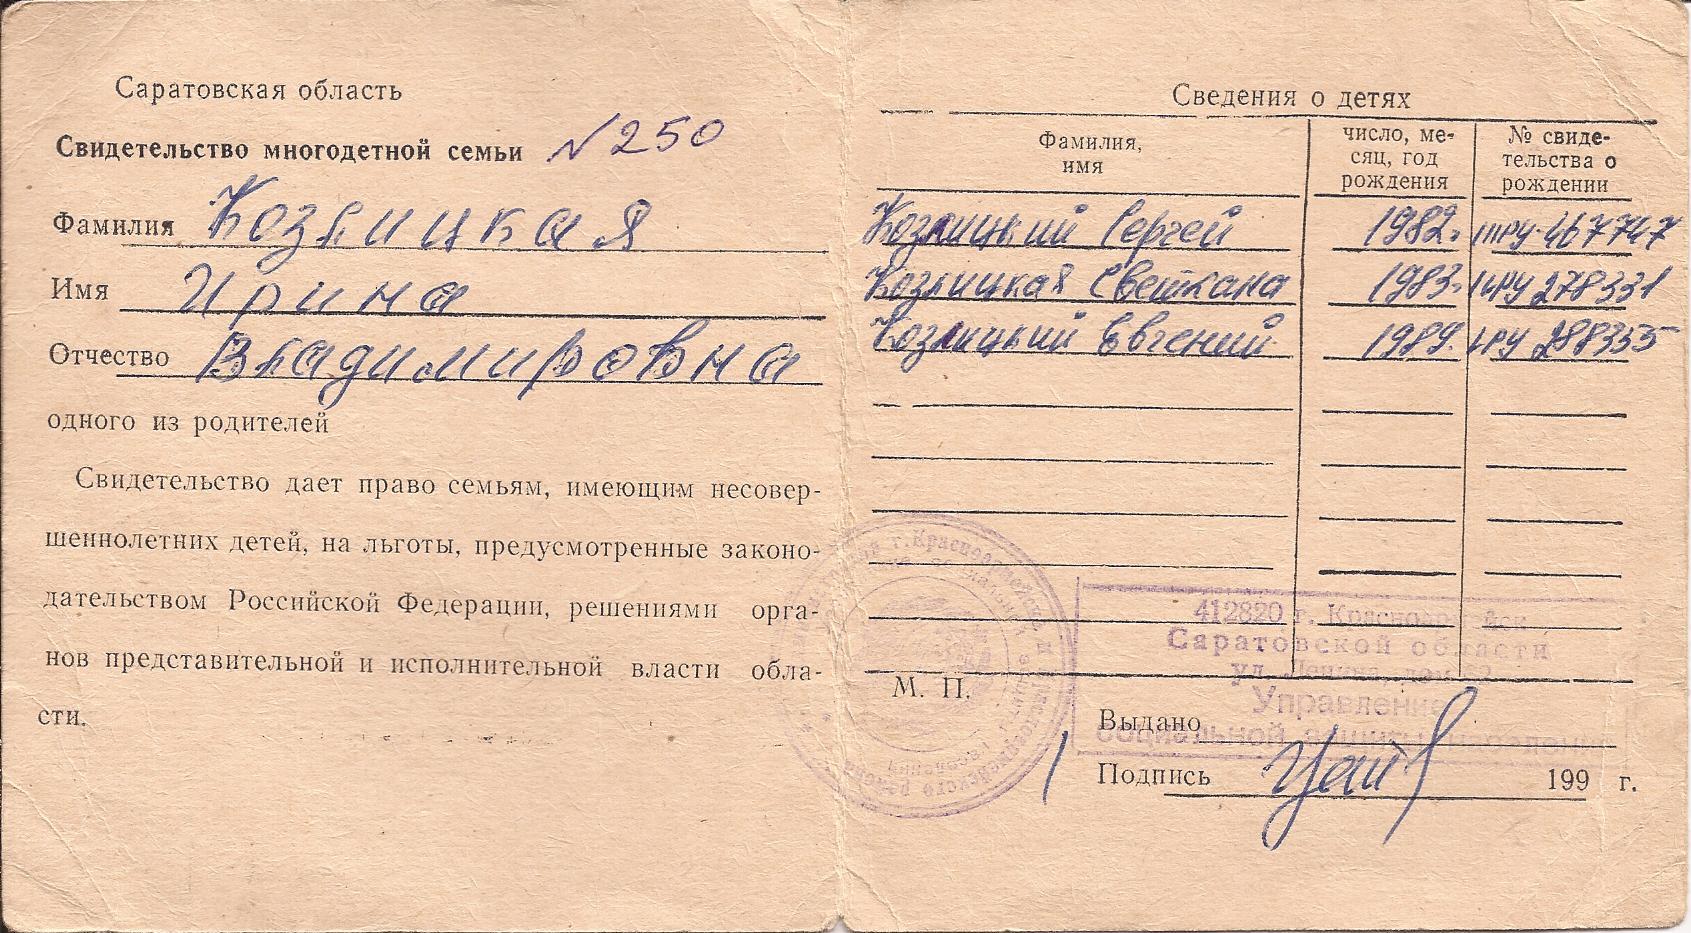 Саратовская область
Свидетельство многодетной семьи N 250
Фамилия Козлицкая
Имя Ирина
Отчество Владимировна
одного из родителей
Свидетельство дает право семьям, имеющим несовер-
шеннолетних детей, на льготы, предусмотренные законо-
дательством Российской Федерации, решениями орга-
нов представительной и исполнительной власти обла-
сти.
Сведения о детях
Фамилия, имя
число, ме-
сяц, год
рождения
№ свиде-
тельства о
рождении
Козлицкий Сергей 1982. 467747
Козлицкая Светлана 1983. 278331
Козлицкий Евгений 1989. 288355
412820 г. Красноармейск
Саратовской области
ул. Ленина, дом
Управление
социальной защиты населения
М. П.
Выдано
Подпись 199 г.